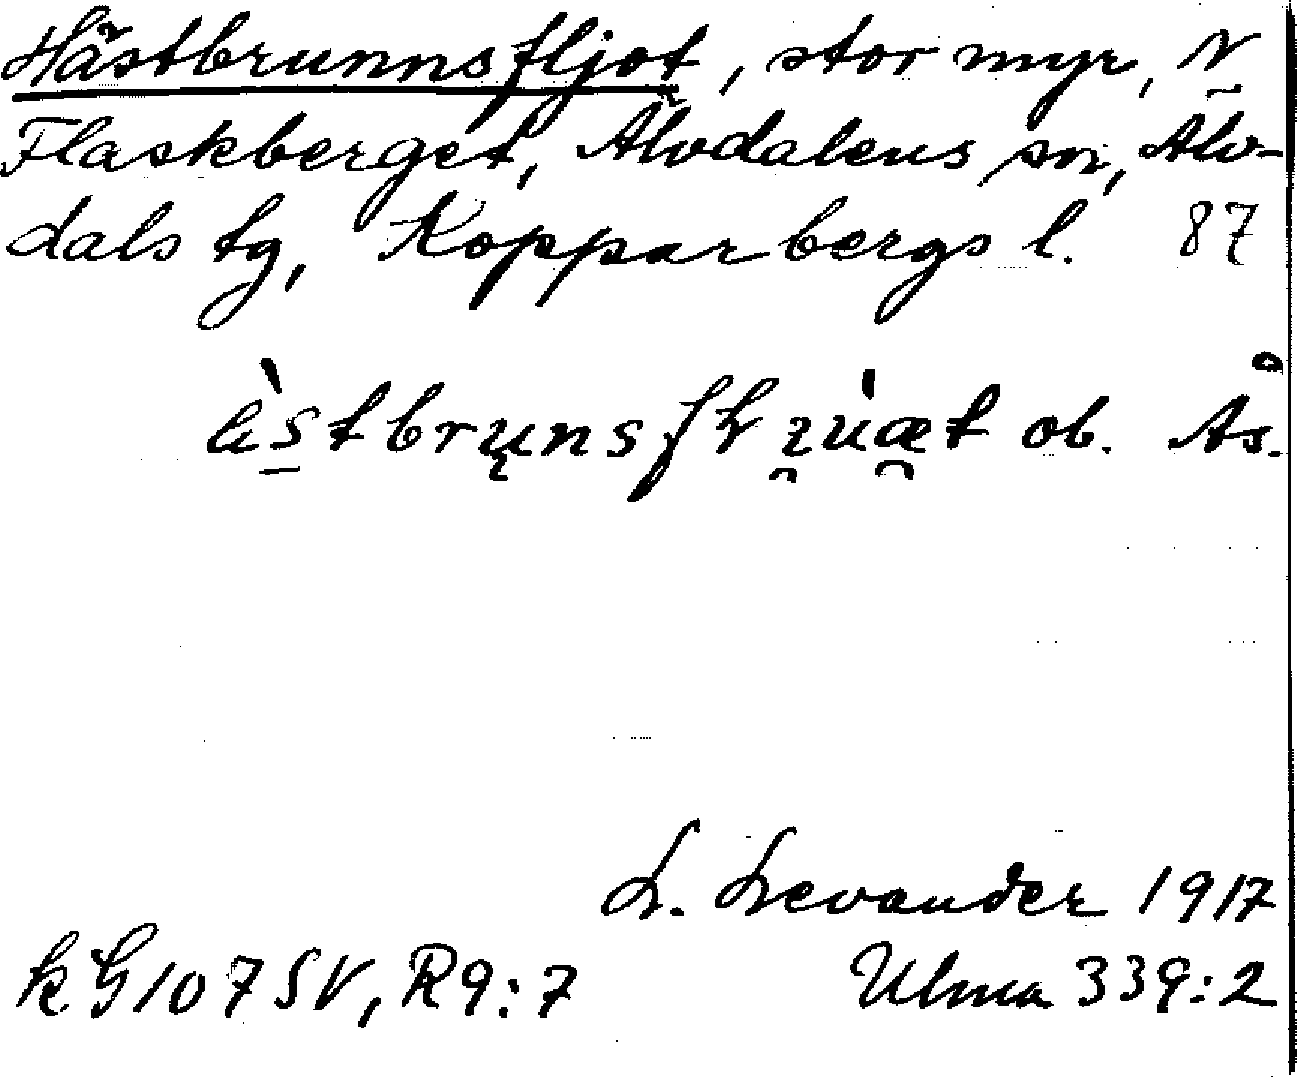 Hästbrunnsfljot, stor myr, N
Flaskberget, Älvdalens sn, Älv-
dals tg, Kopparbergs l. 87
ob. Ås.
L. Levander 1917
k G107SV, R9:7 Ulma 339:2